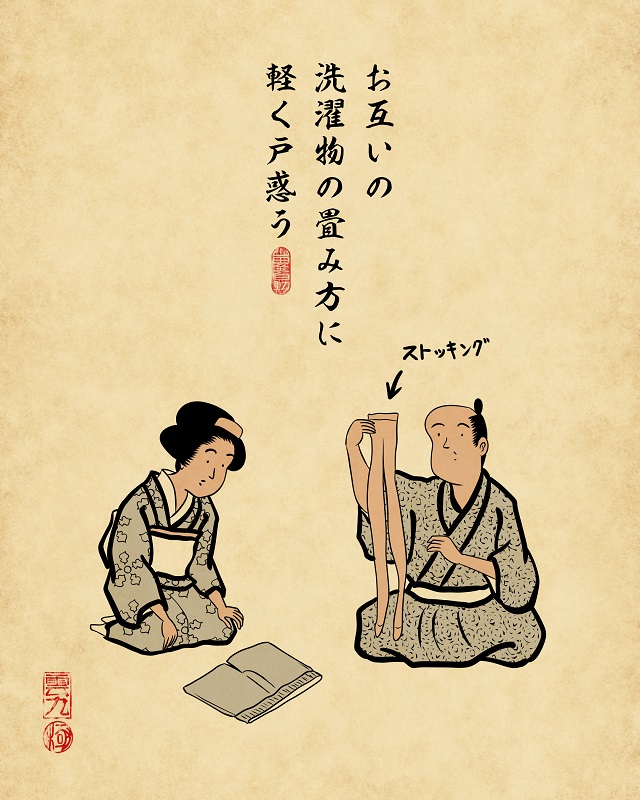 お互いの
洗濯物の畳み方に
軽く戸惑う
ストッキング